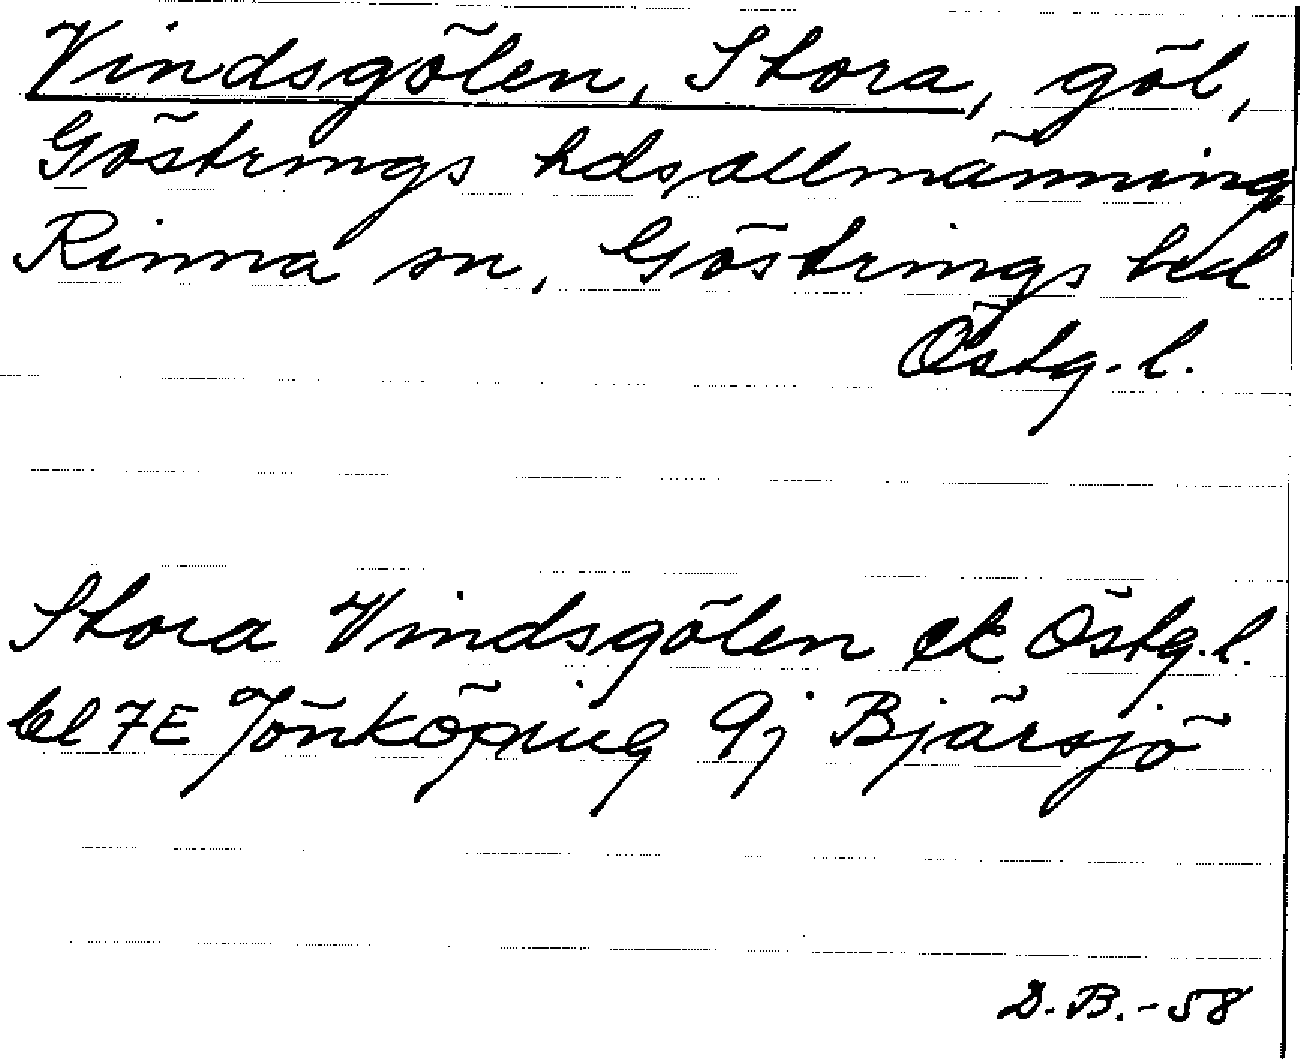 Vindsgölen, Stora, göl,
Göstrings hdsallmänning
Rinna sn, Göstrings hd
Östg. l.
Stora Vindsgölen ek Östg.l.
bl 7E Jönköping 9j Bjärsjö
D.B.-58